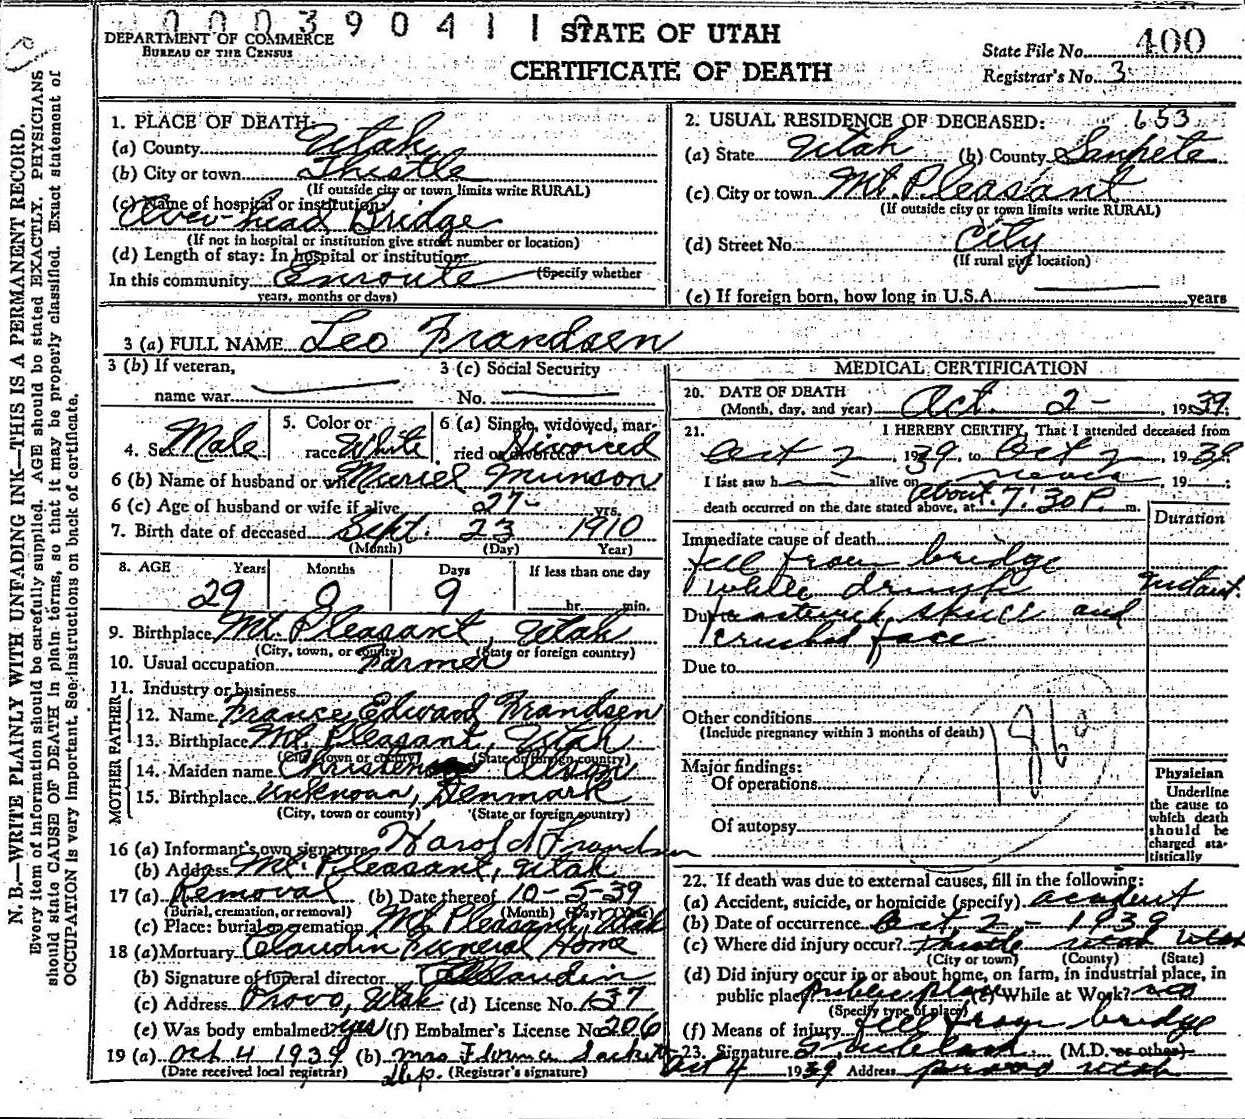 00039041
STATE OF UTAH
DEPARTMENT OF COMMERCE
BUREAU OF THE CENSUS
CERTIFICATE OF DEATH
State File No. 400
Registrar's No. 3
N. B.—WRITE PLAINLY WITH UNFADING INK—THIS IS A PERMANENT RECORD.
Every item of information should be carefully supplied. AGE should be stated EXACTLY. PHYSICIANS
should state CAUSE OF DEATH in plain terms, so that it may be properly classified. Exact statement of
OCCUPATION is very important. See instructions on back of certificate.
1. PLACE OF DEATH:
(a) County Utah
(b) City or town Thistle
(If outside city or town limits write RURAL)
(c) Name of hospital or institution:
Over-head Bridge
(If not in hospital or institution give street number or location)
(d) Length of stay: In hospital or institution
(Specify whether
In this community Enroute
years, months or days)
2. USUAL RESIDENCE OF DECEASED: 653
(a) State Utah (b) County Sanpete
(c) City or town Mt. Pleasant
(If outside city or town limits write RURAL)
(d) Street No. City
(If rural give location)
(e) If foreign born, how long in U.S.A. years
3 (a) FULL NAME Leo Frandsen
3 (b) If veteran,
name war
3 (c) Social Security
No.
4. Sex Male
5. Color or
race White
6 (a) Single, widowed, mar-
ried or divorced Divorced
6 (b) Name of husband or wife Muriel Munson
6 (c) Age of husband or wife if alive 27 yrs.
7. Birth date of deceased Sept. 23 1910
(Month) (Day) Year)
8. AGE Years Months Days If less than one day
29 0 9 hr. min.
9. Birthplace Mt. Pleasant, Utah
(City, town, or county) (State or foreign country)
10. Usual occupation Farmer
11. Industry or business
FATHER
12. Name France Edward Frandsen
13. Birthplace Mt. Pleasant, Utah
(City, town or county) (State or foreign country)
MOTHER
14. Maiden name
15. Birthplace Unknown, Denmark
(City, town or county) (State or foreign country)
16 (a) Informant's own signature Harold Frandsen
(b) Address Mt. Pleasant, Utah
17 (a) Removal (b) Date thereof 10-5-39
(Burial, cremation, or removal) (Month) (Day) (Year)
(c) Place: burial or cremation Mt. Pleasant, Utah
18 (a) Mortuary Claudin Funeral Home
(b) Signature of funeral director Claudin
(c) Address Provo, Utah (d) License No. 137
(e) Was body embalmed? yes (f) Embalmer's License No. 206
19 (a) Oct 4 1939 (b) Mrs
(Date received local registrar) Dep. (Registrar's signature)
MEDICAL CERTIFICATION
20. DATE OF DEATH
(Month, day, and year) Oct. 2- , 1939.
21. I HEREBY CERTIFY, That I attended deceased from
Oct 2, 1939, to Oct 2, 1939
I last saw h alive on never, 19 ;
death occurred on the date stated above, at About 7:30 P. m.
Duration
Immediate cause of death
fell from bridge
while drunk instant.
Due to struck skull and
crushed face
Due to
Other conditions
(Include pregnancy within 3 months of death)
186
Major findings:
Of operations
Of autopsy
Physician
Underline
the cause to
which death
should be
charged sta-
tistically
22. If death was due to external causes, fill in the following:
(a) Accident, suicide, or homicide (specify) accident
(b) Date of occurrence Oct. 2 - 1939
(c) Where did injury occur? Thistle Utah Utah
(City or town) (County) (State)
(d) Did injury occur in or about home, on farm, in industrial place, in
public place? Public place (e) While at Work? no
(Specify type of place)
(f) Means of injury fell from bridge
23. Signature (M.D. or other)
Oct 4 1939 Address Provo Utah